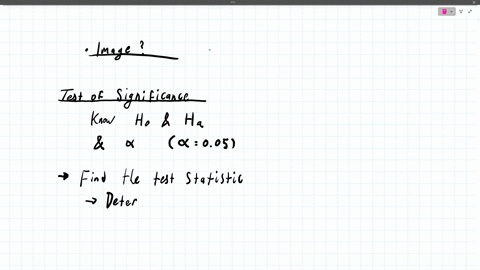 • Image ?
Test of Significance
Know Ho & Ha
& α (α = 0.05)
→ Find the test statistic
→ Deter